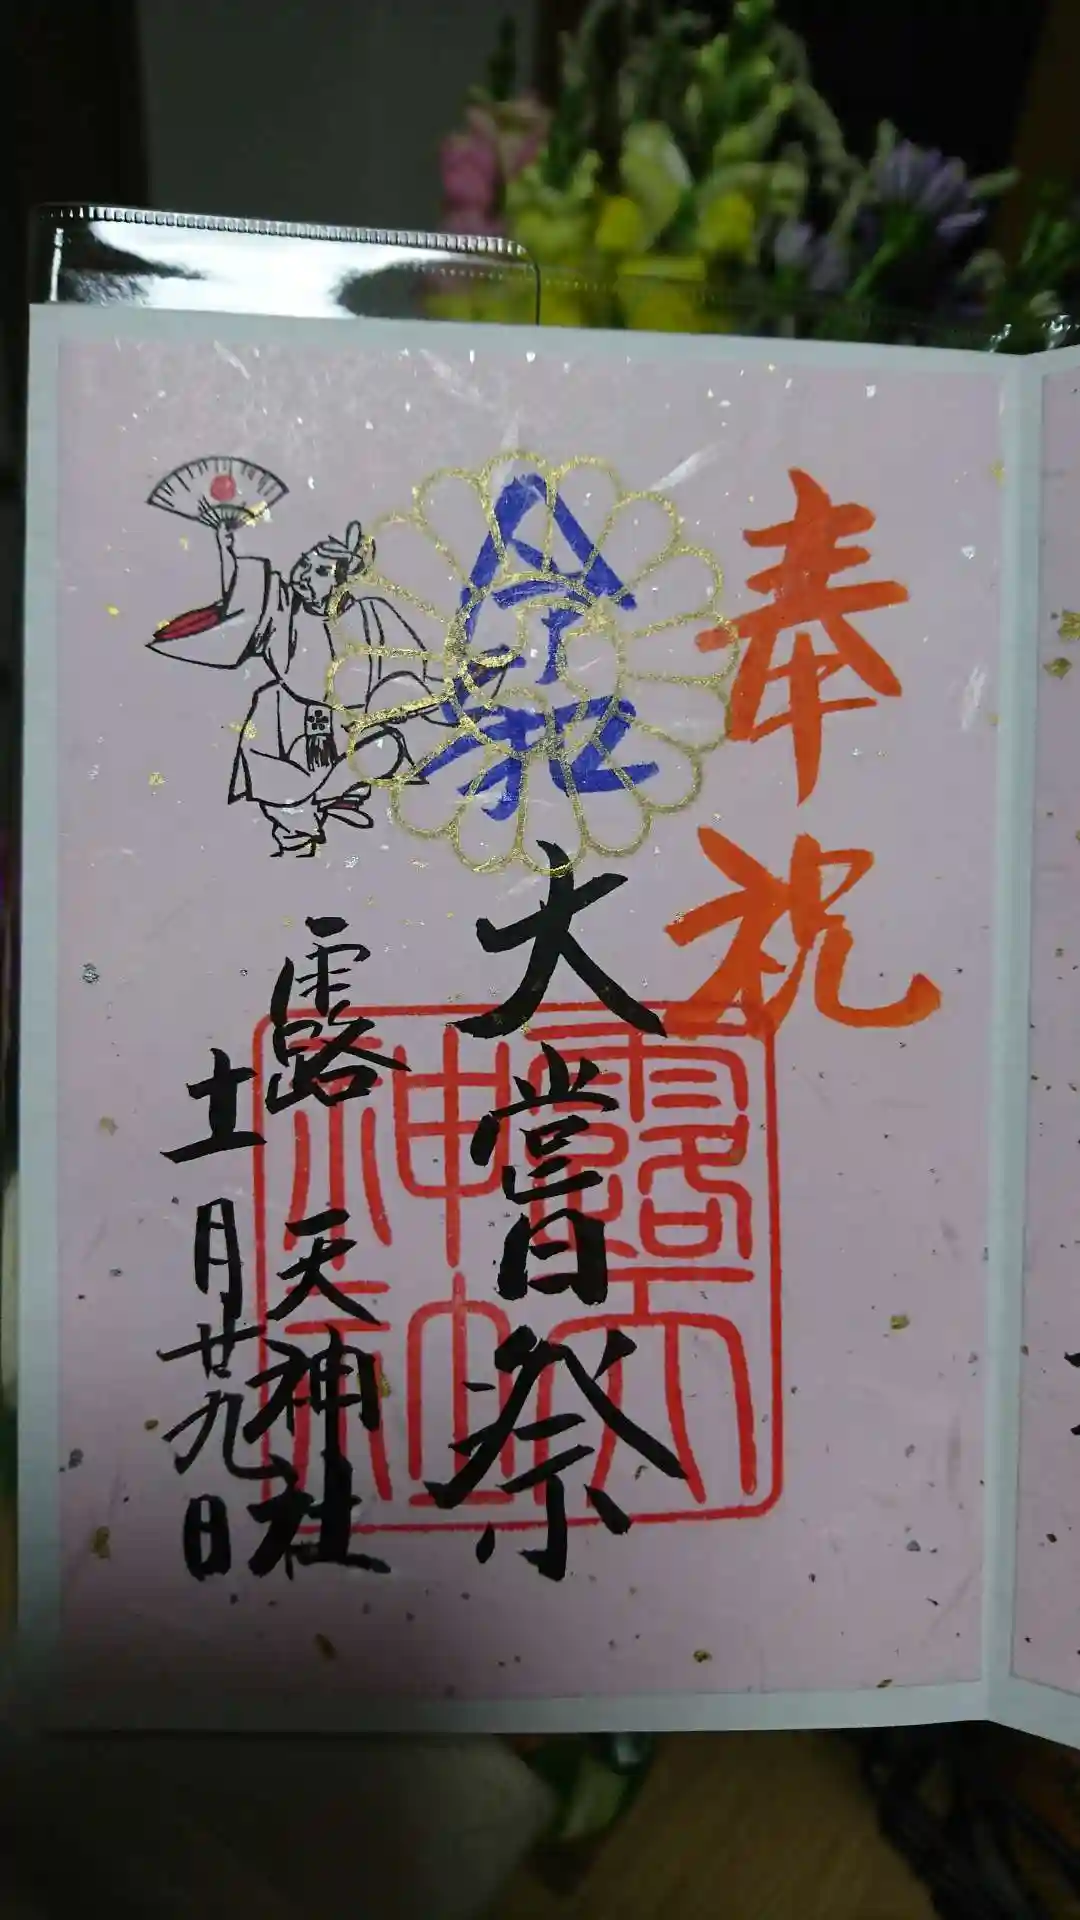 奉祝
令和
大嘗祭
露天神社
十一月廿九日
露天
神社